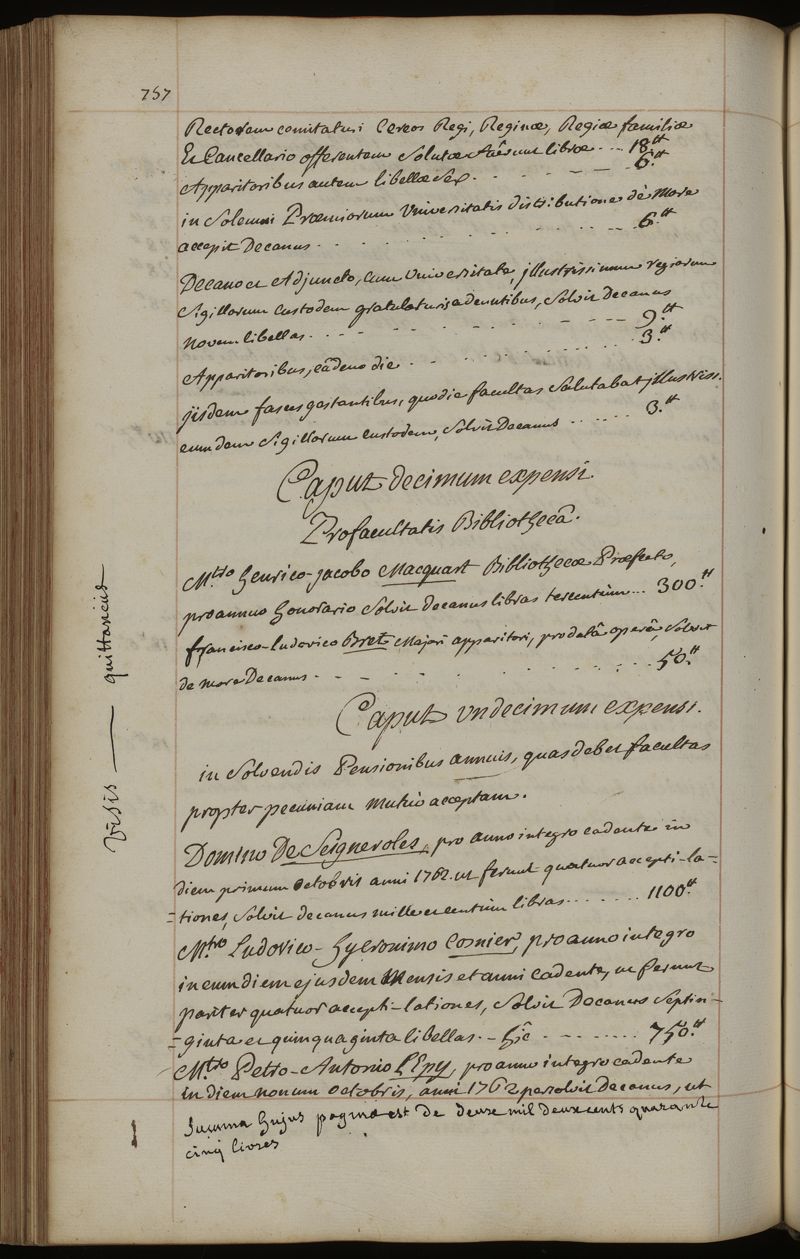 757
Rectorem comitatusi Cereos Regi, Reginæ, Regiæ familiæ
Et Cancellario offerentem Solutæ fuerunt libræ - ... 18.tt
Apparitoribus autem libellæ Sex. - - - - - 6.tt
in Solemni Præmiorum Universitatis distributione de More
accepit Decanus - . . . . . . . . . . 6.tt
Decano et Adjuncto, cum Universitate, jllustrissimum regiorum
Sigillorum Custodem gratulaturis adeuntibus, Solvit Decanus
Novem libellas . . - - - - - - - - 9.tt
Apparitoribus, eâdem die - . . . . . . . . 3.tt
jisdem fasces gestantibus, quo die facultas Salutabat jllustriss.
eumdem Sigillorum Custodem, Solvit Decanus . . . . . . 3.tt
Caput decimum expensi.
Pro facultatis Bibliothecâ.
M.tro henrico-jacobo Macquart Bibliothecæ Præfecto,
pro annuo honorario Solvit Decanus libras tercentum ... 300.tt
francisco-ludovico Bret Majori apparitori, pro datâ operâ, Solvit
de more Decanus - . - - . . . . . . . . 50.tt
Caput undecimum expensi.
in Solvendis Pensionibus annuis, quas debet facultas
propter pecuniam Mutuo acceptam.
Domino De Seigneroles, pro anno integro cadente in
diem primum octobris anni 1762. ut ferunt quatuor accepti-la=
=tiones, Solvit decanus mille et centum libras . . . . . . . 1100.tt
M.tro Ludovico-Hyeronimo Cosnier, pro anno integro
in eumdiem ejusdem Mensis et anni Cadente, ut ferunt
pariter quatuor accepti-lationes, Solvit Decanus Septin-
=ginta et quinquaginta libellas. - hîc - - . . . . . . 750.tt
M.tro Petro-Antonio L'Epy, pro anno integro cadente
in diem nonum octobris, anni 1762 persolvit Decanus, ut
Summa hujus paginæ est de deux mil deux cents quarante
cinq livres
Visis — quittanciis